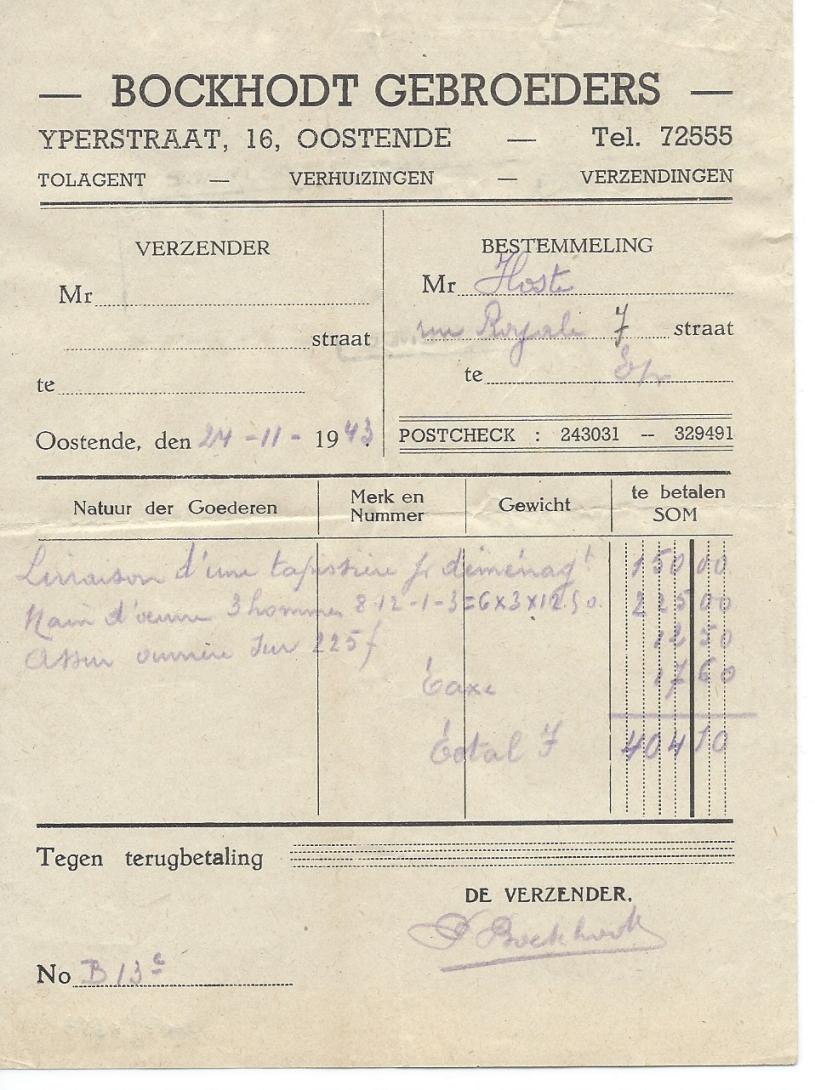 — BOCKHODT GEBROEDERS —
YPERSTRAAT, 16, OOSTENDE — Tel. 72555
TOLAGENT — VERHUIZINGEN — VERZENDINGEN
VERZENDER
Mr
straat
te
Oostende, den 24-11-1943.
BESTEMMELING
Mr Hoste
rue Royale 7 straat
te
POSTCHECK : 243031 -- 329491
Natuur der Goederen Merk en Nummer Gewicht te betalen SOM
Livraison d'une tapissière pr déménagt 150 00
Main d'œuvre 3 hommes 8-12-1-3=6x3x12.50. 225 00
Assur ouvrière sur 225f 12 50
Taxe 17 60
Total F 404 10
Tegen terugbetaling
DE VERZENDER.
Bockhodt
No B 13